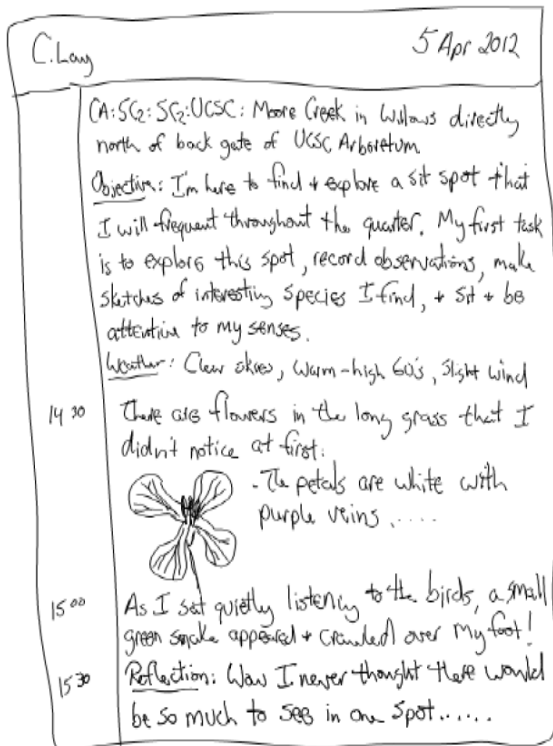 C. Lay
5 Apr 2012
CA: SC2: SC2: UCSC: Moore Creek in Willows directly
north of back gate of UCSC Arboretum
Objective: I'm here to find + explore a sit spot that
I will frequent throughout the quarter. My first task
is to explore this spot, record observations, make
sketches of interesting species I find, + sit + be
attentive to my senses.
Weather: Clear skies, warm-high 60's, slight wind
14 30 There are flowers in the long grass that I
didn't notice at first.
- The petals are white with
purple veins.....
15 00 As I sat quietly listening to the birds, a small
green snake appeared + crawled over my foot!
15 30 Reflection: Wow I never thought there would
be so much to see in one spot......